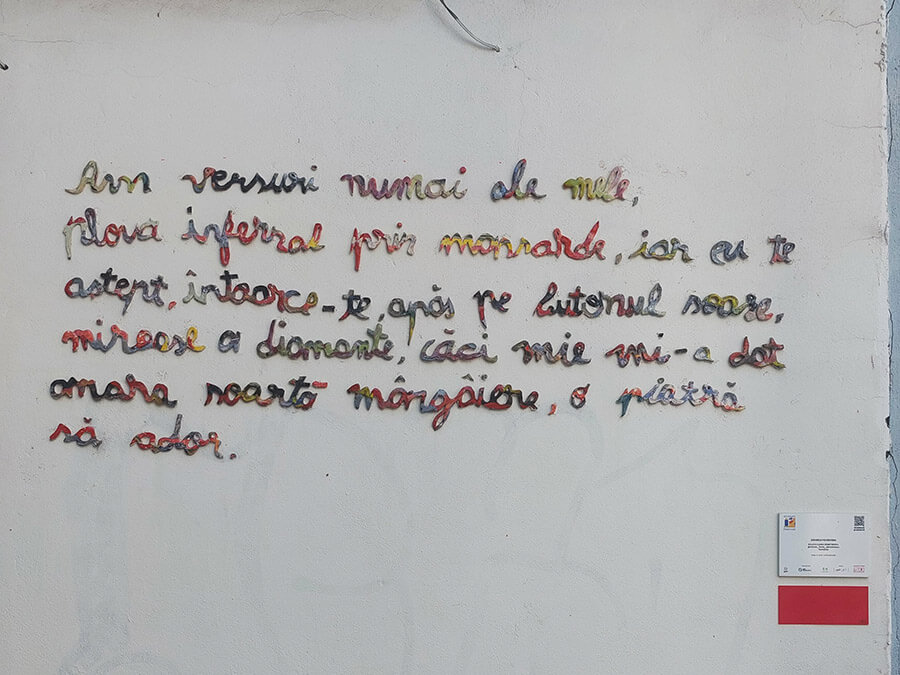 Am versuri numai ale mele,
ploua infernal prin mansarde, iar eu te
astept, întoarce-te, apăs pe butonul soare,
miroase a diamante, căci mie mi-a dat
amara soartă mângâiere, o piatră
să ador.